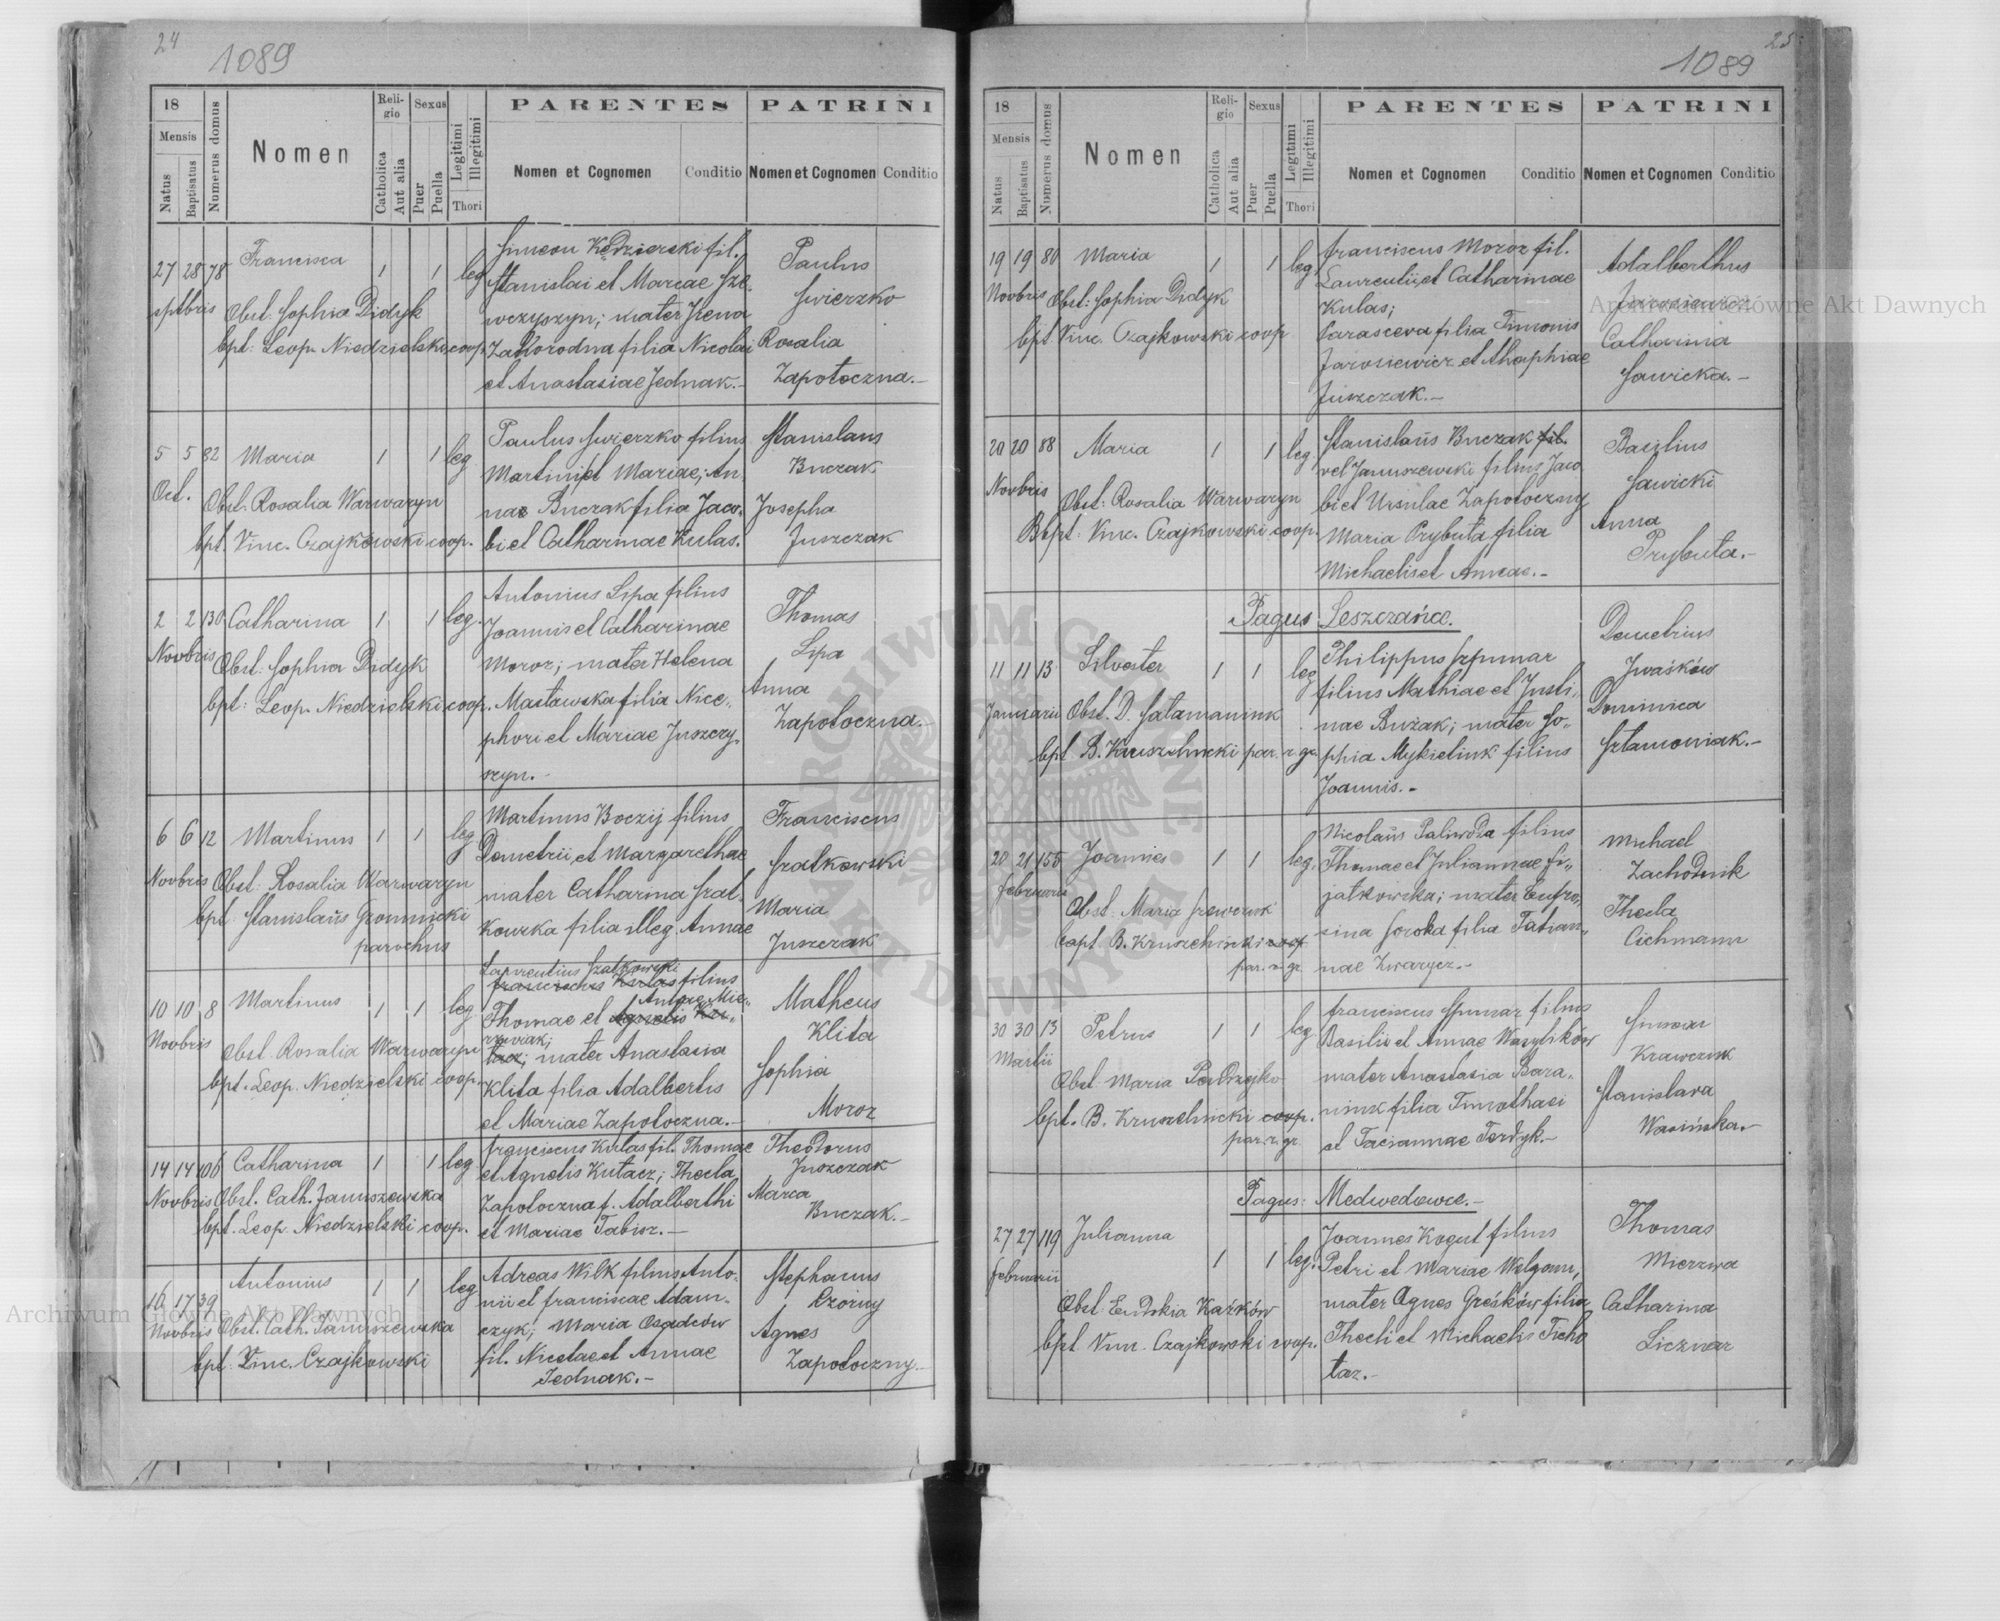 24
1089
18
Mensis
Natus
Baptisatus
Numerus domus
Nomen
Religio
Catholica
Aut alia
Sexus
Puer
Puella
Legitimi
Illegitimi
Thori
PARENTES
Nomen et Cognomen
Conditio
PATRINI
Nomen et Cognomen
Conditio
27 28 78 Francisca 1 1 leg.
sptbris Obst. Sophia Didyk
bpt: Leop. Niedzielski coop.
Simeon Kędzierski fil.
Stanislai et Mariae Sze-
wczyszyn; mater Irena
Zahorodna filia Nicolai
et Anastasiae Jednak.-
Paulus
Swierzko
Rosalia
Zapotoczna.-
5 5 82 Maria 1 1 leg
Oct. Obst. Rosalia Warwaryn
bpt. Vinc. Czajkowski coop.
Paulus Swierzko filius
Martini et Mariae; An-
nae Buczak filia Jaco-
bi et Catharinae Kulas.
Stanislaus
Buczak
Josepha
Juszczak
2 2 130 Catharina 1 1 leg.
Novbris Obst: Sophia Didyk
bpt: Leop. Niedzielski coop.
Antonius Lipa filius
Joannis et Catharinae
Moroz; mater Helena
Masłowska filia Nice-
phori et Mariae Juszczy-
szyn.-
Thomas
Lipa
Anna
Zapotoczna.-
6 6 12 Martinus 1 1 leg
Novbris Obst: Rosalia Warwaryn
bpt Stanislaus Gromnicki
parochus
Martinus Boczij filius
Demetrii et Margarethae
mater Catharina Szat-
kowska filia illeg. Annae
Franciscus
Szatkowski
Maria
Juszczak
10 10 8 Martinus 1 1 leg
Novbris Obst. Rosalia Warwaryn
bpt. Leop. Niedzielski coop.
Laurentius Szatkowski
Franciscus Kulas filius
Annae Mie-
Thomae et Agnetis Ku-
tacz; mater Anastasia
Klita filia Adalberti
et Mariae Zapotoczna.-
Matheus
Klita
Sophia
Moroz
14 14 106 Catharina 1 1 leg
Novbris Obst. Cath. Januszewska
bpt. Leop. Niedzielski coop.
Franciscus Kulas fil. Thomae
et Agnetis Kutacz; Thecla
Zapotoczna f. Adalberthi
et Mariae Tabisz.-
Theodorus
Juszczak
Maria
Buczak.-
16 17 39 Antonius 1 1 leg
Novbris Obst. Cath. Januszewska
bpt: Vinc. Czajkowski
Adreas Wilk filius Anto-
nii et Franciscae Adam-
czyk; Maria Osadców
fil. Nicolae et Annae
Jednak.-
Stephanus
Czorny
Agnes
Zapotoczny.-
25
1089
18
Mensis
Natus
Baptisatus
Numerus domus
Nomen
Religio
Catholica
Aut alia
Sexus
Puer
Puella
Legitimi
Illegitimi
Thori
PARENTES
Nomen et Cognomen
Conditio
PATRINI
Nomen et Cognomen
Conditio
19 19 80 Maria 1 1 leg.
Novbris Obst: Sophia Didyk
bpt Vinc. Czajkowski coop
Franciscus Moroz fil.
Laurentii et Catharinae
Kulas;
Parasceva filia Timonis
Jarosiewicz et Agaphiae
Juszczak.-
Adalberthus
Jarosiewicz
Catharina
Sawicka.-
20 20 88 Maria 1 1 leg.
Novbris Obst: Rosalia Warwaryn
Bapt: Vinc. Czajkowski coop.
Stanislaus Buczak fil.
vel Januszewski filius Jaco-
bi et Ursulae Zapotoczny
Maria Prybuta filia
Michaelis et Annae.-
Basilius
Sawicki
Anna
Prybuta.-
Pagus Leszczańce.
11 11 13 Silvester 1 1 leg
Januarii Obst. D. Salamaniuk
bpt B. Kruszelnicki par. r. gr.
Philippus Szpunar
filius Mathiae et Justi-
nae Bużak; mater So-
phia Mykieliuk filius
Joannis.-
Demetrius
Iwaśków
Dominica
Sztamoniak.-
20 21 155 Joannes 1 1 leg.
Februarii Obst: Maria Szewczuk
bapt B. Kruszelnicki coop
par. r. gr.
Nicolaus Paliwoda filius
Thomae et Juliannae Fi-
jałkowska; mater Eufro-
sina Soroka filia Tatian-
nae Zwarycz.-
Michael
Zachodnik
Thecla
Cichmann
30 30 13 Petrus 1 1 leg
Martii
Obst. Maria Perdzejko
bpt. B. Kruszelnicki coop.
par. r. gr.
Franciscus Spunar filius
Basilii et Annae Wasylików
mater Anastasia Bara-
niuk filia Timothaei
et Taciannae Ferdyk.-
Simeon
Krawczuk
Stanislava
Wasińska.-
Pagus: Medwedowce.-
27 27 119 Julianna 1 1 leg.
Februarii
Obst: Eudokia Kaśków
bpt Vinc. Czajkowski coop.
Joannes Kogut filius
Petri et Mariae Welgom,
mater Agnes Greśków filia
Thecli et Michaelis Ticho
taz.-
Thomas
Mierzwa
Catharina
Licznar
Archiwum Główne Akt Dawnych
Archiwum Główne Akt Dawnych
ARCHIWUM GŁÓWNE AKT DAWNYCH